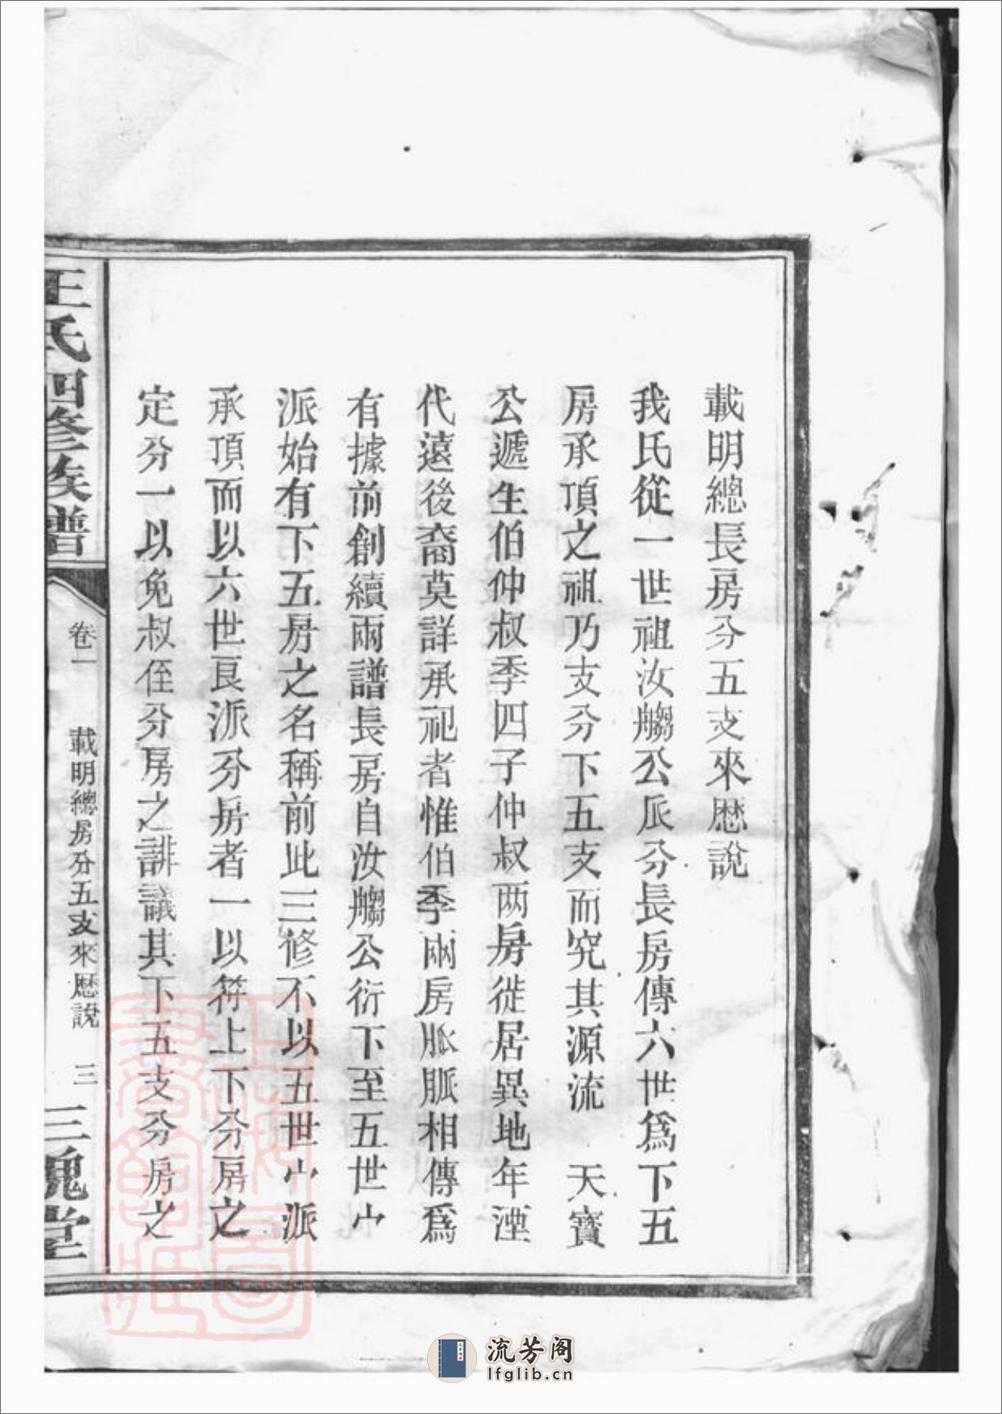 載明總長房分五支來歷說
我氏從一世祖汝艒公派分長房傳六世為下五
房承頂之祖乃支分下五支而究其源流　天寶
公遞生伯仲叔季四子仲叔两房徙居異地年湮
代遠後裔莫詳承祀者惟伯季兩房脈脈相傳為
有據前創續兩譜長房自汝艒公衍下至五世宀
派始有下五房之名稱前此三修不以五世宀派
承頂而以六世艮派分房者一以符上下分房之
定分一以免叔侄分房之誹議其下五支分房之
王氏四修族譜
卷一
載明總房分五支來歷說
三
三槐堂
上海圖書館藏
流芳阁
lfglib.cn